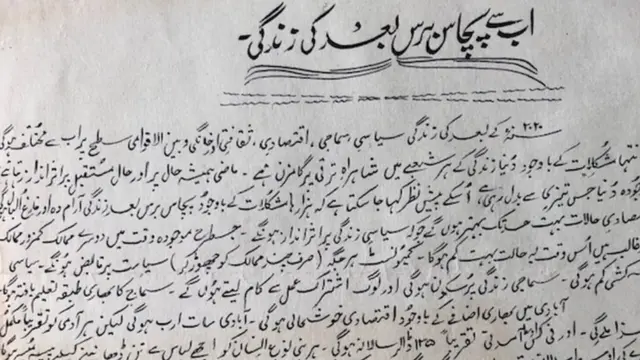 اب سے پچاس برس بعد کی زندگی۔
۲۰۲۰ سنہ کے بعد کی زندگی سیاسی، سماجی، اقتصادی، ثقافتی اور خانگی و بین الاقوامی سطح پر اب سے مختلف ہوگی
انتہا مشکلات کے باوجود دُنیا زندگی کے ہر شعبے میں شاہراہِ ترقی پر گامزن ہے۔ ماضی ہمیشہ حال پر اور حال مستقبل پر اثرانداز رہتا ہے
دنیا جس تیزی سے بدل رہی ہے، اُسکے پیش نظر کہا جا سکتا ہے کہ ہزارہا مشکلات کے باوجود پچاس برس بعد زندگی آرام دہ اور فارغ البال
حالات بہت حد تک بہتر ہوں گے جو سیاسی زندگی پر اثرانداز ہونگے۔ جسطرح موجودہ وقت میں دوسرے ممالک کمزور ممالک
غالب ہیں اُس وقت یہ حالت بہت کم ہوگا۔ کمیونسٹ ہر جگہ (صرف چند ممالک کو چھوڑ کر) سیاست پر قابض ہونگے۔ سیاسی
کم ہوگی۔ زندگی پرسکون ہوگی اور لوگ اشتراکِ عمل سے کام لیتے ہوں گے۔ سماج کا بھاری طبقہ تعلیم یافتہ ہوگا
آبادی میں بھاری اضافے کے باوجود اقتصادی خوشحالی ہوگی۔ آبادی سات ارب ہوگی لیکن ہر آدمی کو تقریباً مکمل
ملے گی۔ اور فی کس آمدنی تقریباً ڈالر سالانہ ہوگی۔ بنی نوع انسان کو اچھے لباس سے تن